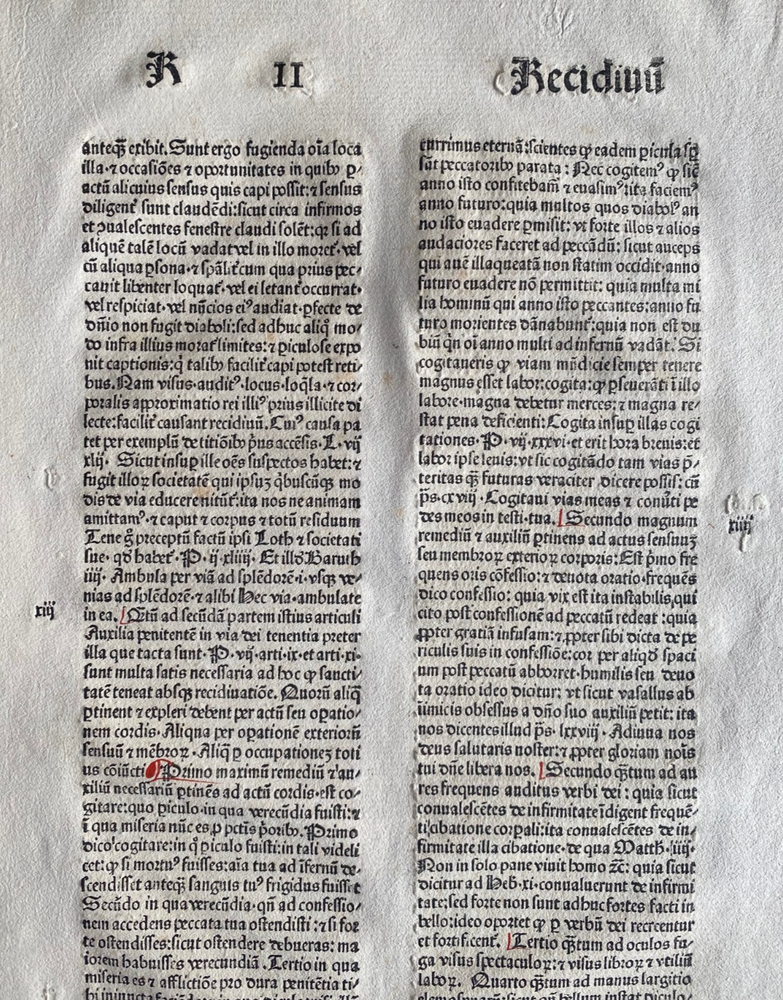 R II Recidiuū
anteq̃ exibit. Sunt ergo fugienda oīa loca
illa ⁊ occasiōes ⁊ oportunitates in quibꝰ p-
actū alicuius sensus quis capi possit: ⁊ sensus
diligenť sunt claudēdi: sicut circa infirmos
et ꝯualescentes fenestre claudi solēt: qꝛ si ad
aliquē talē locū vadat vel in illo moreť. vel
cū aliqua ꝑsona ⁊ spāliťcum qua prius pec-
cauit libenter loquať. vel ei letanť occurrat.
vel respiciat. vel nūcios eiꝰ audiat. ꝑfecte de
dn̄io non fugit diaboli: sed adhuc aliq̃ mo-
do infra illius moraťlimites: ⁊ ꝑiculose expo
nit captionis: q̄ talibꝰ faciliťcapi potest reti-
bus. Nam visus. auditꝰ. locus. loq̄la. ⁊ cor-
poralis approximatio rei illiꝰ prius illicite di
lecte: faciliť causant recidiuū. Cuiꝰ causa pa
tet per exemplū de titiōibꝰ pꝰus accēsis. L. vij
xlij. Sicut insuꝑ ille oēs suspectos habet: ⁊
fugit illoꝝ societatē qui ipsuꝫ q̄buscūqꝫ mo
dis de via educere nitūť: ita nos ne animam
amittamꝰ. ⁊ caput ⁊ corpus ⁊ totū residuum
Tene g̊ preceptū factū ipsi Loth ⁊ societati
sue. qđ habeť. P. ij. xliiij. Et illđ Baruch
iiij. Ambula per viā ad splēdorē. i. vsqꝫ ve-
nias ad splēdorē. ⁊ alibi Hec via. ambulate
in ea. Q̄tū ad secūdā partem istius articuli
Auxilia penitentē in via dei tenentia preter
illa que tacta sunt. P. vij. arti. ix. et arti. xi.
sunt multa satis necessaria ad hoc ꝙ sancti-
tatē teneat absqꝫ recidiuatiōe. Quorū aliq̄
ꝑtinent ⁊ expleri debent per actū seu oꝑatio-
nem cordis. Aliqua per oꝑationē exteriorū
sensuū ⁊ mēbroꝝ. Aliq̄ ꝑ occupationeꝫ toti
us cōiūcti Primo maximū remediū ⁊ au-
xiliū necessariū ꝑtinēs ad actū cordis. est co-
gitare: quo ꝑiculo. in qua verecūdia fuisti: ⁊
ī qua miseria nūc es. ꝓ pctīs ꝓ̄oribꝰ. Primo
dico cogitare: in q̊ ꝑiculo fuisti: in tali videli
cet: ꝙ si mortuꝰ fuisses: aīa tua ad īfernū de-
scendisset anteq̃ sanguis tuꝰ frigidus fuisset
Secūdo in qua verecūdia. qn̄ ad confessio-
nem accedens peccata tua ostendisti: ⁊ si for
te ostendisses: sicut ostendere debueras: ma
iorem habuisses verecundiā. Tertio in qua
miseria es ⁊ afflictiōe pro dura penitētia ti-
currimus eternā: scientes ꝙ eadem ꝑicula
sūt peccatoribꝰ parata: Nec cogitemꝰ ꝙ sic̄
anno isto confitebam̄ ⁊ euasimꝰ: ita faciemꝰ
anno futuro: quia multos quos diabolꝰ an
no isto euadere ꝑmisit: vt forte illos ⁊ alios
audaciores faceret ad peccādū: sicut auceps
qui auē illaqueatā non statim occidit. anno
futuro euadere nō permittit: quia multa mi
lia hominū qui anno isto peccantes: anno fu
turo morientes dānabunť: quia non est du
biū qn̄ oī anno multi ad infernū vadāť. Si
cogitaueris ꝙ viam mūdicie semper tenere
magnus esset labor: cogita: ꝙ ꝑseuerāti ī illo
labore. magna debetur merces: ⁊ magna re-
stat pena deficienti: Cogita insuꝑ illas cogi
tationes. P. vij. xxxvi. et erit hora breuis: et
labor ipse leuis: vt sic cogitādo tam vias p̄-
teritas q̃ futuras veraciter dicere possis: cū
ps̄. cxviij. Cogitaui vias meas ⁊ conūti pe
des meos in testi. tua. Secundo magnum xiiij
remediū ⁊ auxiliū ꝑtinens ad actus sensuuꝫ
seu membroꝝ exterioꝝ corporis: Est p̄mo fre
quens oris cōfessio: ⁊ deuota oratio. frequēs
dico confessio: quia vix est ita instabilis, qui
cito post confessionē ad peccatū redeat: quia
ꝓpter gratiā infusam: ⁊ ꝓpter sibi dicta de pe
riculis suis in confessiōe: cor per aliqđ spaci
um post peccatū abhorret. humilis seu deuo
ta oratio ideo dicitur: vt sicut vasallus ab
īimicis obsessus a dn̄o suo auxiliū petit: ita
nos dicentes illud ps̄. lxxviij. Adiuua nos
deus salutaris noster: ⁊ ꝓpter gloriam noīs
tui dn̄e libera nos. Secundo q̄tum ad au
res frequens auditus verbi dei: quia sicut
conualescētes de infirmitate īdigent frequē-
ti cibatione corꝑali: ita conualescētes de in-
firmitate illa cibatione. de qua Matth. iiij.
Non in solo pane viuit homo ꝛc̄: quia sicut
dicitur ad Heb. xi. conualuerunt de infirmi
tate: sed forte non sunt adhuc fortes facti in
bello: ideo oportet ꝙ ꝑ verbū dei recreentur
et fortificenť. Tertio q̄tum ad oculos fu-
ga visus spectaculoꝝ: ⁊ visus libroꝝ ⁊ vtiliū
laboꝝ. Quarto q̄tum ad manus largitio
xiij